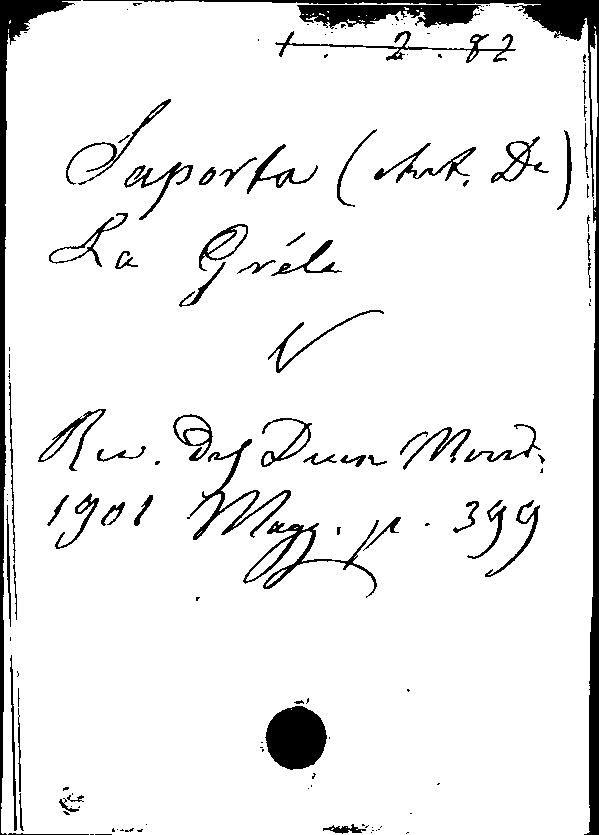 1. 2. 82
Saporta (Ant. De)
La Gréle
V
Rev. Des Deux Mond.
1901 Magg. p. 399